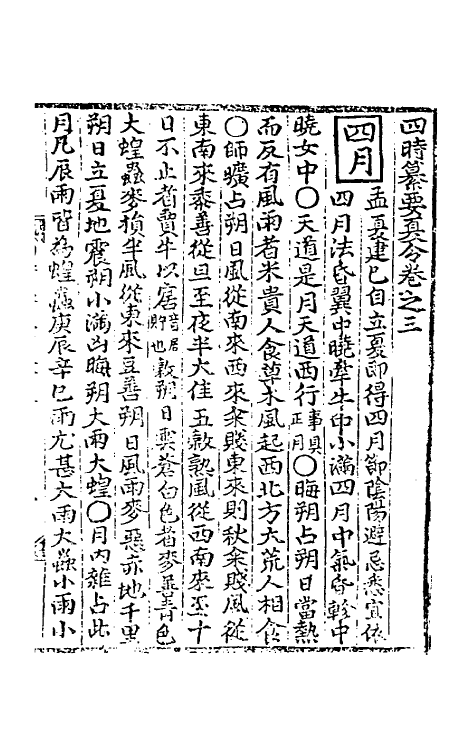 四時纂要夏令卷之三
四月
孟夏建巳自立夏即得四月節陰陽避忌悉宜依
四月法昏翼中曉牽牛中小滿四月中氣昏軫中
曉女中〇天道是月天道西行事具正月〇晦朔占朔日當熱
而反有風雨者米貴人食草木風起西北方大荒人相食
〇師曠占朔日風從南來西來籴賤東來則秋籴賤風從
東南來黍善從旦至夜半大佳五穀熟風從西南來至十
日不止者賣牛以居音居貯也穀朔日雲蒼白色者麥並善色
大蝗蟲麥積半風從東來豆善朔日風雨麥惡赤地千里
朔日立夏地震朔小滿凶晦朔大雨大蝗〇月內雜占此
月凡辰雨皆為蝗蟲庚辰辛巳雨尤甚大雨大蟲小雨小